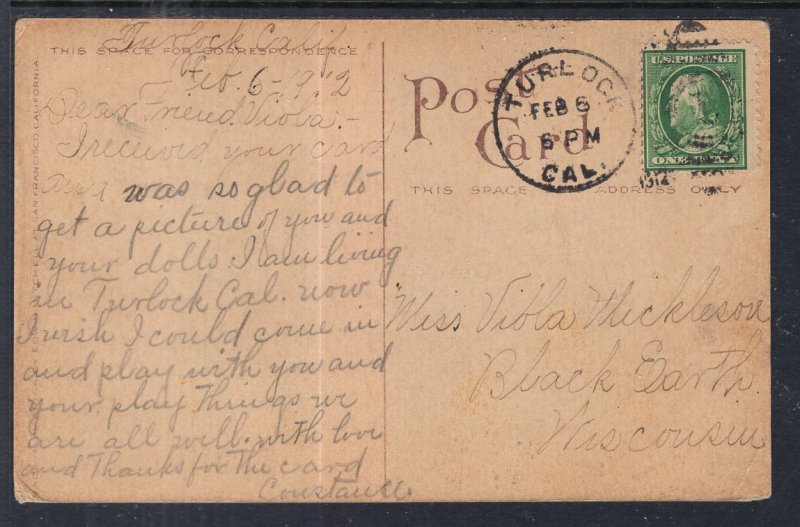 Turlock Calif.
THIS SPACE FOR CORRESPONDENCE
Feb. 6 - 1912
Dear Friend Viola -
I received your card
and was so glad to
get a picture of you and
your dolls. I am living
in Turlock Cal. now
I wish I could come in
and play with you and
your play things we
are all well. with love
and Thanks for the card
Constance.
Post
Card
THIS SPACE ADDRESS ONLY
TURLOCK
FEB 6
6 PM
CAL.
1912
U.S. POSTAGE
ONE
Miss Viola Mickleson
Black Earth
Wisconsin
SAN FRANCISCO, CALIFORNIA